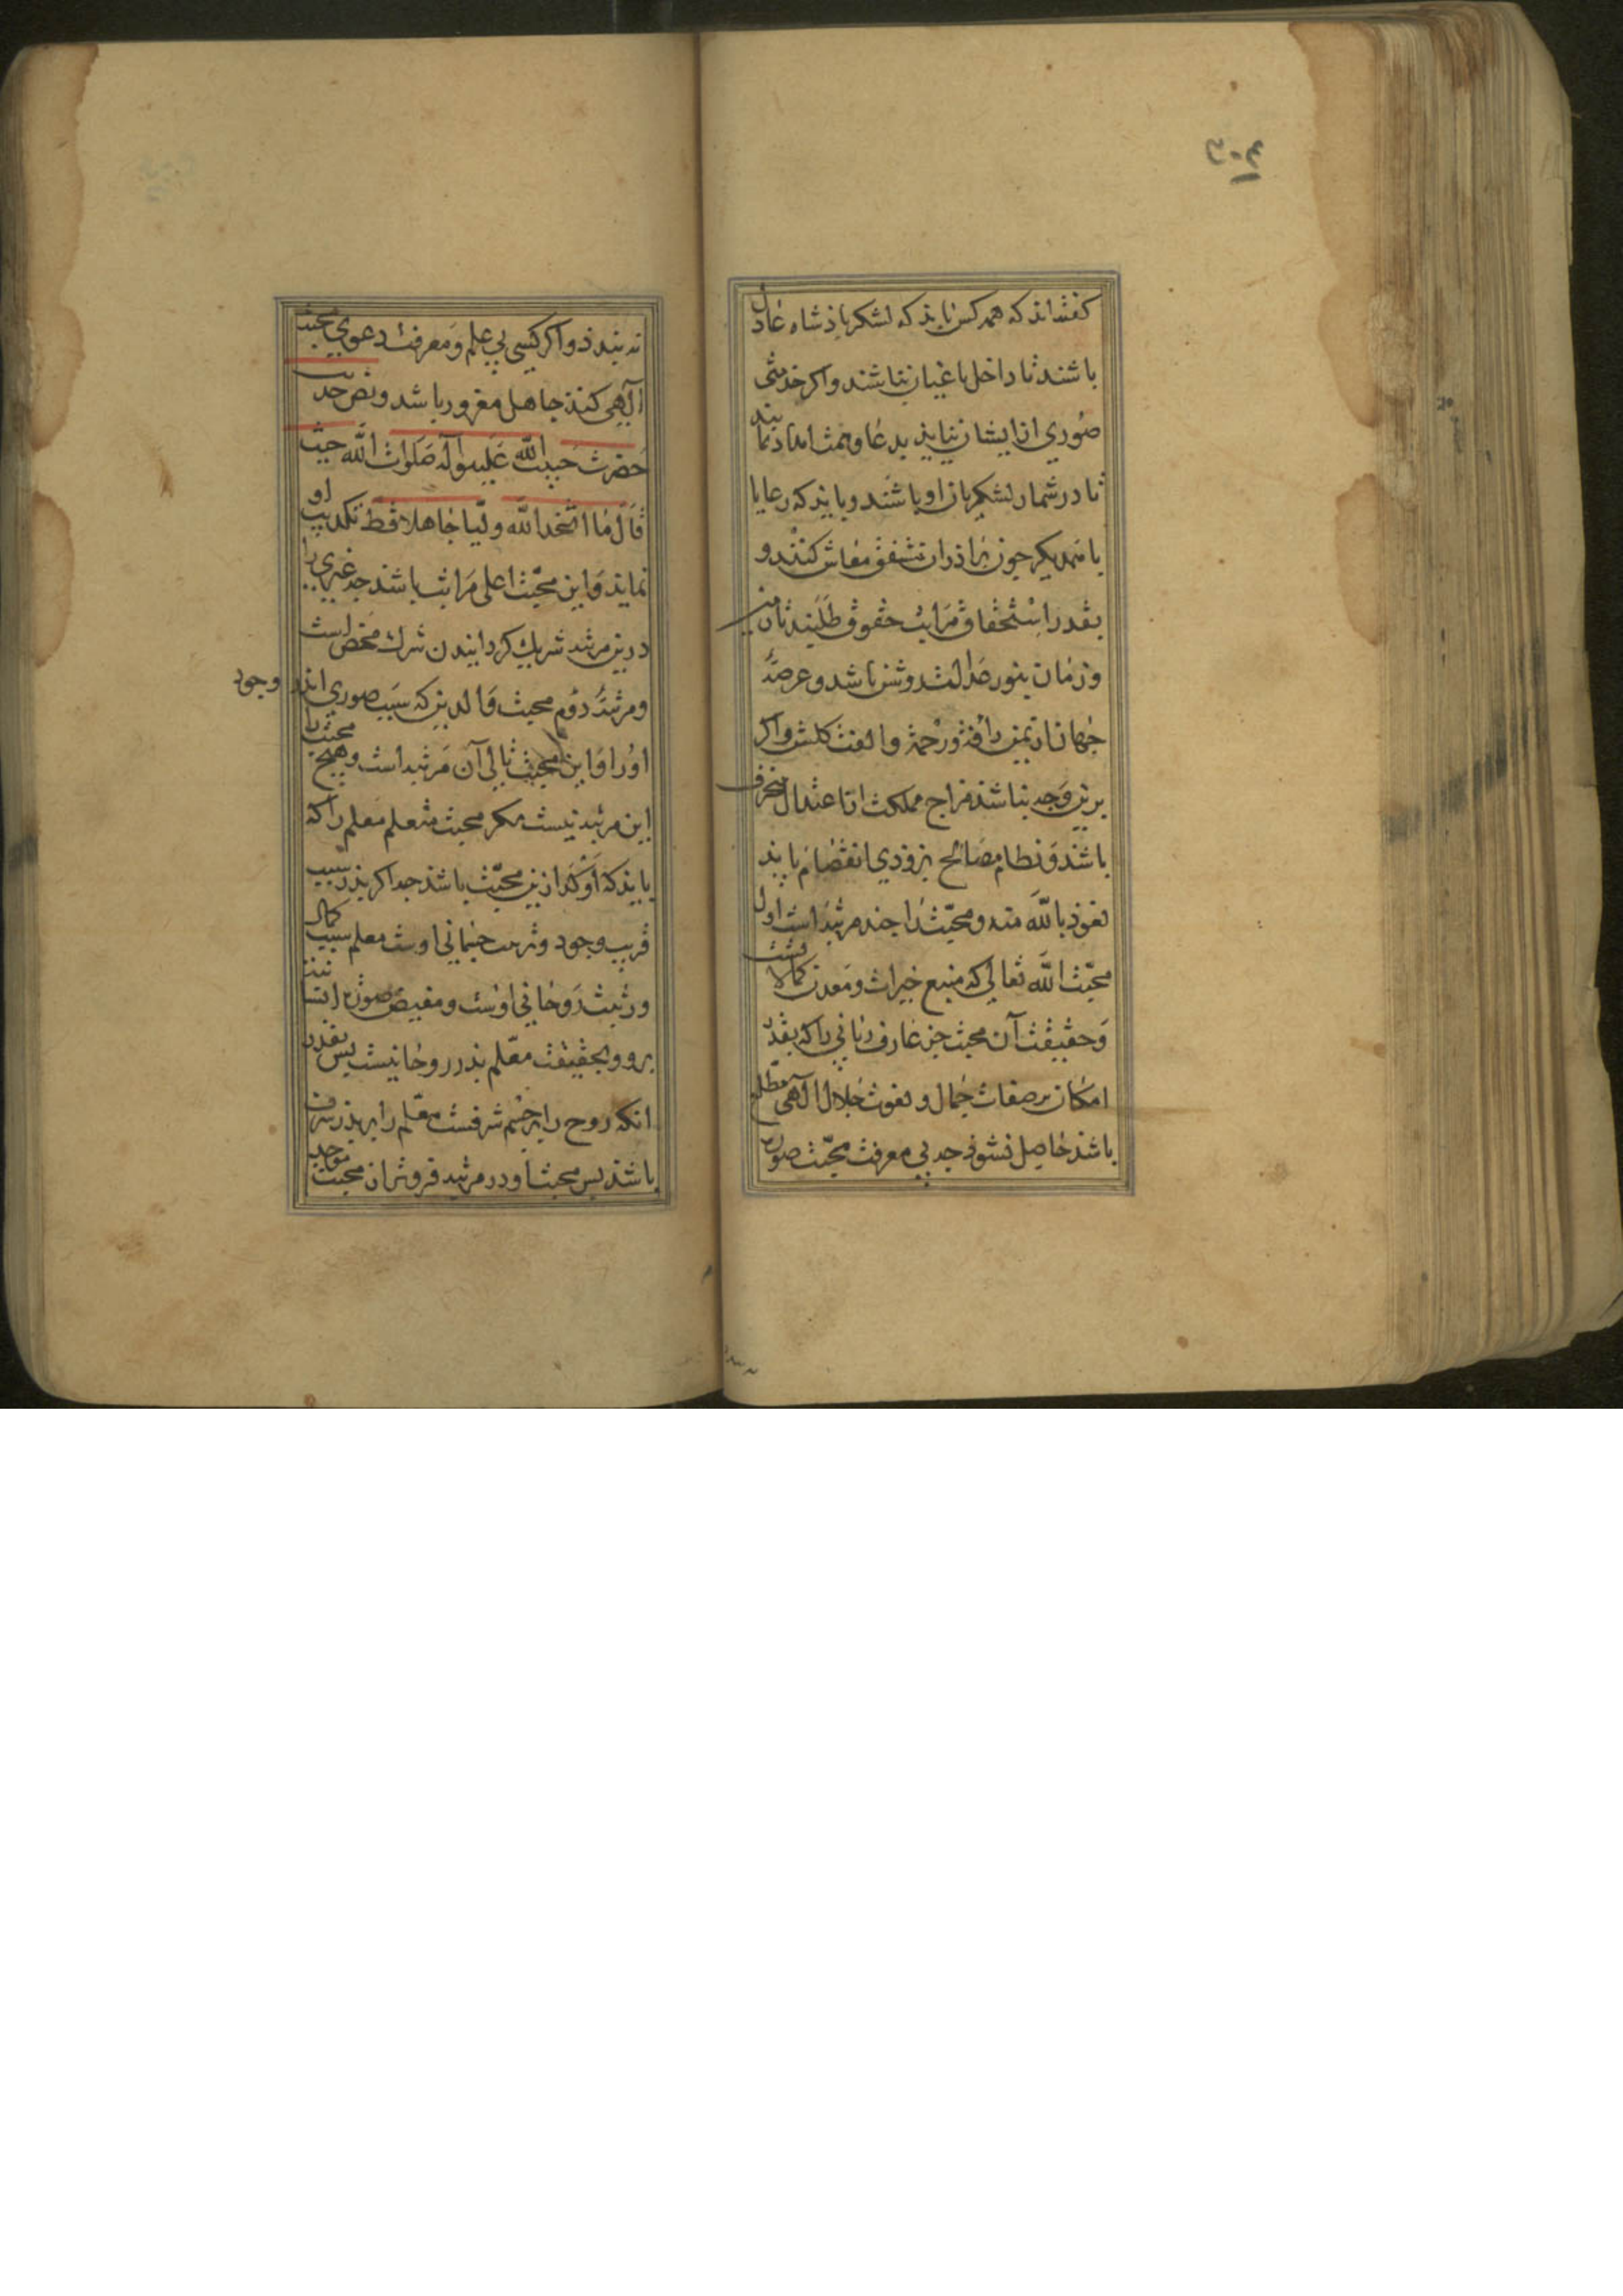 گفته‌اند که همه کس باید که لشکر پادشاه عادل
باشند تا داخل باغیان نباشند و اکر خدمتی
صوری از ایشان نیایذ بدعا و همت امداد نمایند
تا در شمار لشکریان او باشند و باید که رعایا
با همدیکر چون براذران مشفق معاش کنند و
بقدر استحقاق مراتب حقوق طلبند تا زمین
و زمان بنور عدالت روشن باشد و عرصهٔ
جهان از یمن رأفت و رحمة و الفت کلشن و اکر
برین وجه نباشذ مزاج مملکت از اعتدال منحرف
باشذ و نظام مصالح بزودی انفصام یابد
نعوذ بالله منه و محبّت را چند مرتبه است اول
محبّت الله تعالی که منبع خیرات و معدن کمالاتست
و حقیقت آن محبت جز عارف ربانی را که بقدر
امکان بر صفات جمال و نعوت جلال الهی مطلع
باشذ حاصل نشود چه بی معرفت محبّت صورت
نه بندذ و اکر کسی بی علم و معرفت دعوی محبت
الهی کند جاهل مغرور باشد و نص حدیث
حضرت حبیب الله علیه و آله صلوات الله حیث
قال ما اتخذ الله ولیّا جاهلا قط تکذیب او
نماید و این محبّت اعلی مراتب باشذ چه غیری را
درین مرتبه شریک کردانیدن شرک محض است
و مرتبهٔ دوم محبت والدین که سبب صوری اند وجود
او را و این محبت تالی آن مرتبه است و هیچ محبت را
این مرتبه نیست مکر محبت متعلم معلم را که
باید که اوکد ازین محبّت باشذ چه اکر پذر سبب
قریب وجود و تربیت جسمانی اوست معلم سبب کمال
و تربیت روحانی اوست و مفیض صورت انسانیت
برو و بحقیقت معّلم پذر روحانیست پس بقدر
آنکه روح را بر جسم شرفست معّلم را بر پذر شرف
باشذ پس محبت او در مرتبه فروتر از محبت موجد